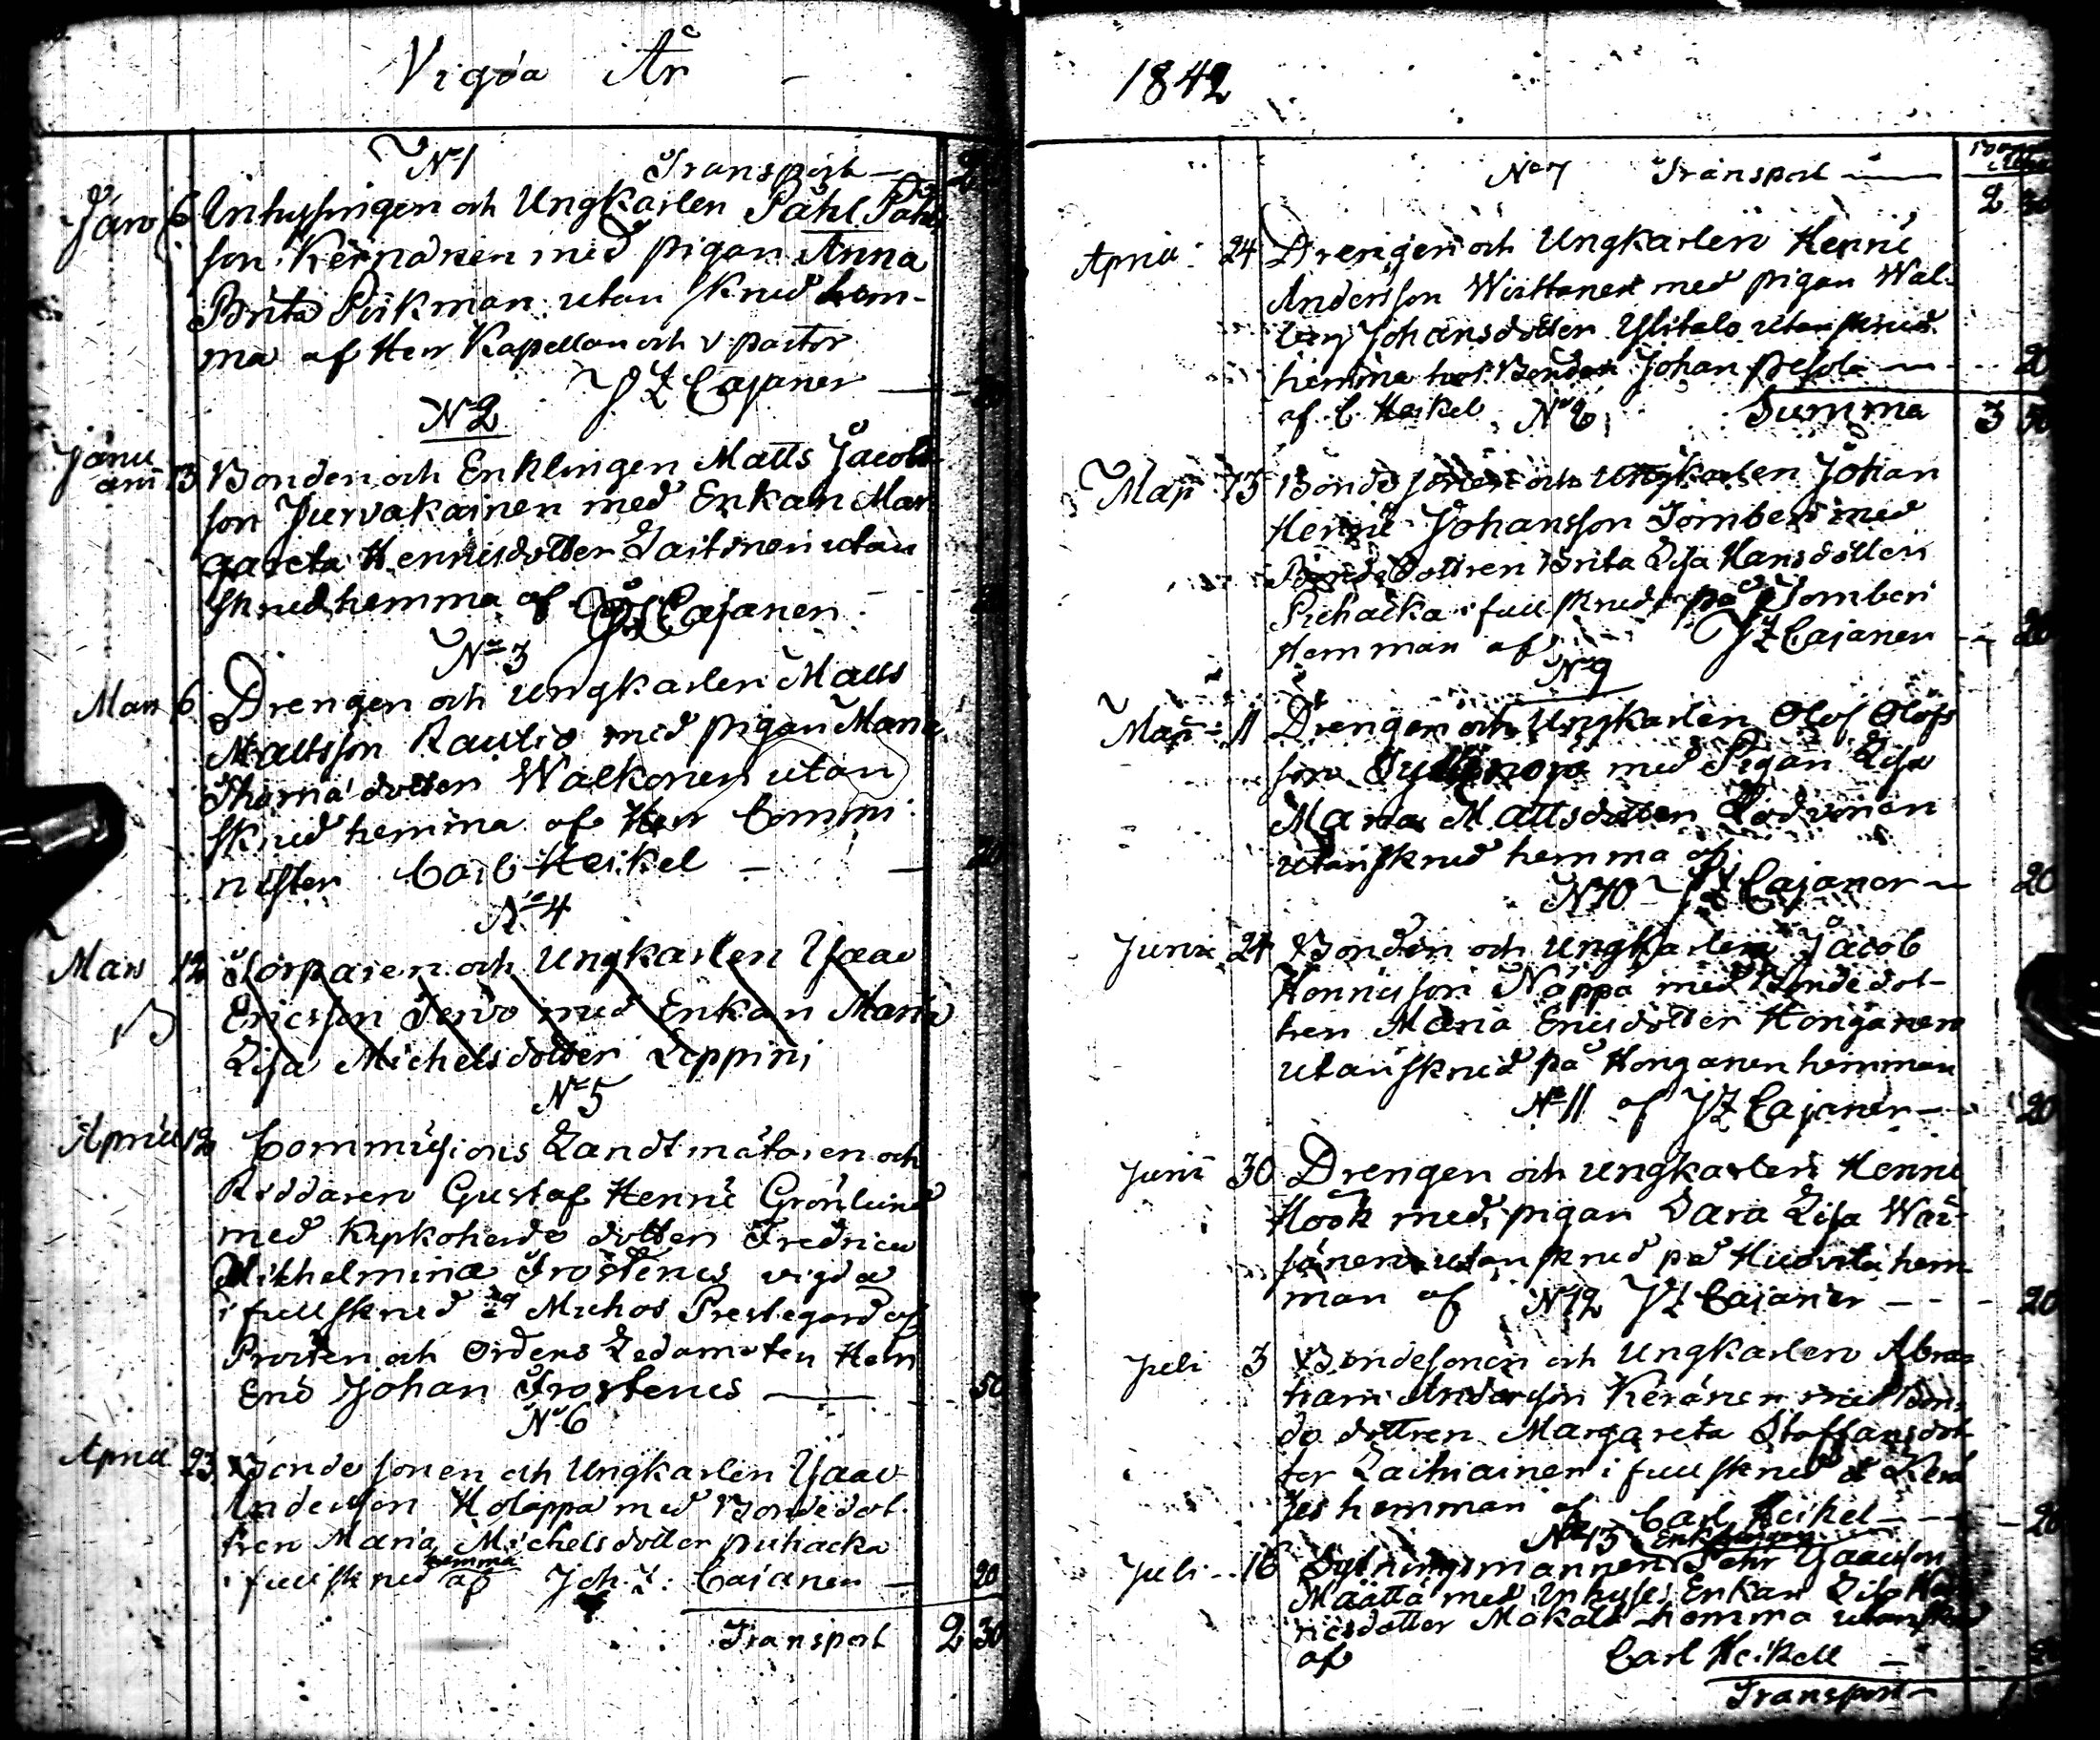 Vigda År
N 1 Transport
Janu 6 Inhysingen och Ungkarlen Påhl Påhls
son Keränänen med pigan Anna
Brita Pirkman utan skrud hem-
ma af Herr Kapellan och v pastor
J Z Cajaner
N 2
Janu
arii 13 Bonden och Enklingen Matts Jacobs
son Jurvakainen med Enkan Mar
gareta Henricsdotter Laitinen utan
skrud hemma af J Z Cajanen
No 3
Mars 6 Drengen och ungkarlen Matts
Mattsson Rautio med pigan Maria
Thomædotter Walkonen utan
skrud hemma af Herr Commi
nister Carl Heikel 20
No 4
Mars 12 Torparen och Ungkarlen Isaac
Ericsson Tervo med Enkan Maria
Lisa Michelsdotter Leppini
No 5
April 12 Commissions Landtmätaren och
Riddaren Gustaf Henric Grönlund
med Kyrkoherde dotter Fredrica
Wilhelmina Frosterus vigda
i full skrud på Muhos Prestegård af
Prosten och Ordens Ledamoten Herr
Eric Johan Frosterus 50
No 6
April 23 Bonde sonen och Ungkarlen Isaac
Andersson Holappa med Bondedot
tren Maria Michelsdotter Puhacka
hemma
i full skrud af Joh. Z: Cajanen 20
Transport 2 30
1842
No 7 Transport
2 30
April 24 Drengen och Ungkarlen Henric
Andersson Wirttanen med pigan Wal-
borg Johansdotter Ylitalo utan skrud
hemma hos Bonden Johan Pesola 20
af C Heikel No 8 Summa 3 50
Maji 15 Bonde sonen och Ungkarlen Johan
Henric Johansson Tomberi med
Bonde Dottren Brita Lisa Hansdotter
Puhacka i full skrud på Tomberi
Hemman af J Z Cajanen 20
No 9
Maji 11 Drengen och Ungkarlen Olof Olofs
son med Pigan Lisa
Maria Mattsdotter Lodvinen
utan skrud hemma af
N 10 J Z Cajaner 20
Junii 24 Bonden och Ungkarlen Jacob
Henricsson Näppä med Bondedot-
tren Maria Ericsdotter Honganen
utan skrud på Honganen hemman
No 11 af J Z Cajaner 20
Junii 30 Drengen och ungkarlen Henric
Höök med pigan Sara Lisa Wäi-
sänen utan skrud på Huovila hem
man af N 12 J Z Cajaner 20
Juli 3 Bondesonen och Ungkarlen Abra-
ham Andersson Keränen med Bon-
de dottren Margareta Staffansdot
ter Laitiainen i full skrud å
hemman af Carl Heikel 20
No 13 Enklingen
Juli 16 Sytningsmannen Pehr Isaacsson
Määttä med Inhyses Enkan Lisa Hen
ricsdotter Mokala hemma utan skrud
af Carl Heikell 20
Transport